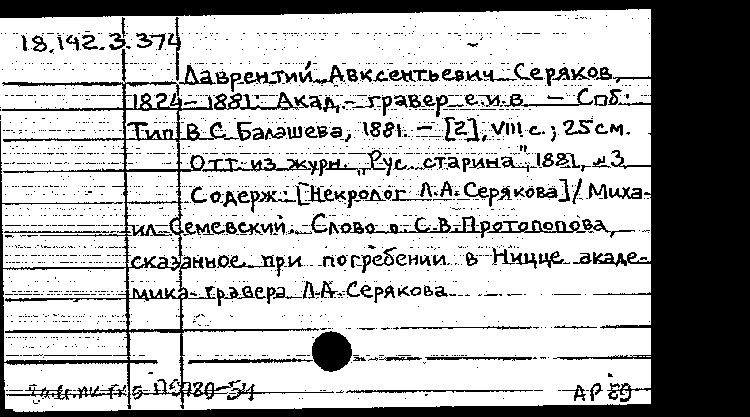 18.142.3.374
Лаврентий Авксентьевич Серяков,
1824-1881: Акад.-гравер е.и.в. – Спб:
Тип В С Балашева, 1881. – [2], VIII с.; 25 см.
Отт. из журн. „Рус. старина", 1881, №3
Содерж: [Некролог Л.А. Серякова] / Миха-
ил Семевский. Слово о. С.В. Протопопова,
сказанное при погребении в Ницце акаде-
мика-гравера Л.А. Серякова
П5780-54
АР 89